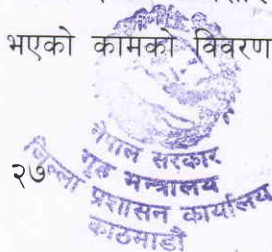 भएको कामको विवरण
२७
नेपाल सरकार
गृह मन्त्रालय
जिल्ला प्रशासन कार्यालय
काठमाडौं